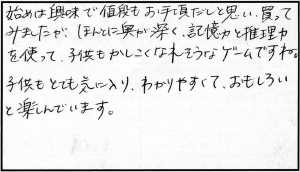 始めは興味で値段もお手頃だしと思い、買って
みましたが、ほんとに奥が深く、記憶力と推理力
を使って、子供もかしこくなれそうなゲームですね。
子供もとても気に入り、わかりやすくて、おもしろい
と楽しんでいます。